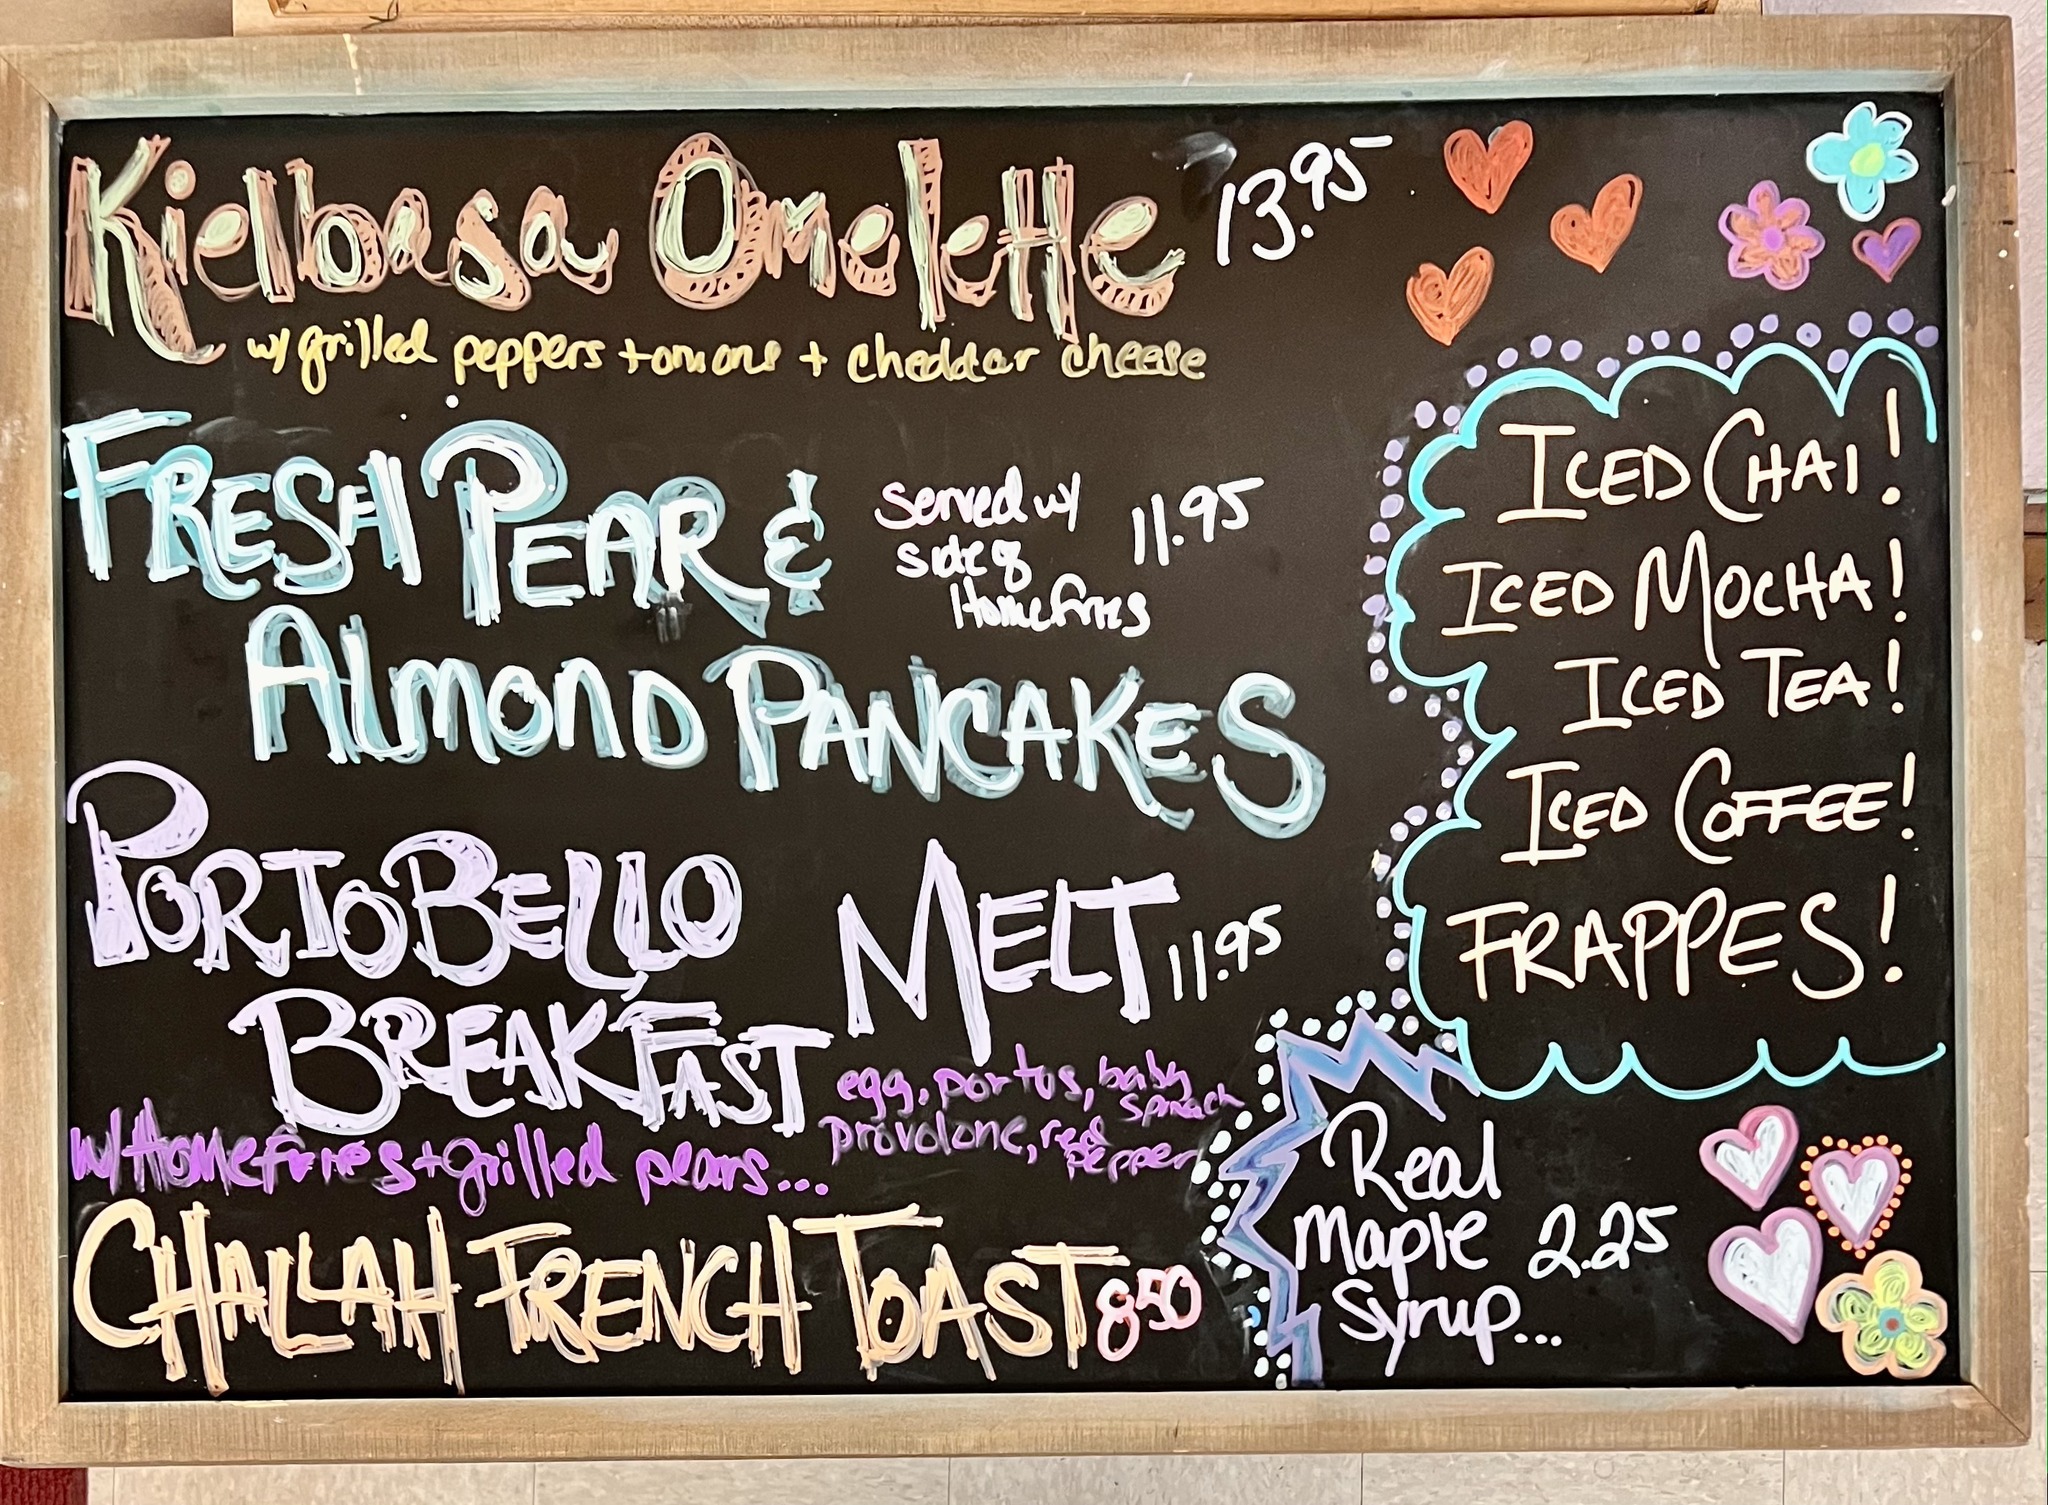 Kielbasa Omelette 13.95
w/ grilled peppers + onions + cheddar cheese
FRESH PEAR &
served w/
side of
Homefries
11.95
ALMOND PANCAKES
PORTOBELLO
BREAKFAST
MELT 11.95
egg, portos, baby
spinach
provolone, red
pepper
w/ Homefries + grilled pears...
CHALLAH FRENCH TOAST 8.50
ICED CHAI!
ICED MOCHA!
ICED TEA!
ICED COFFEE!
FRAPPES!
Real
Maple 2.25
Syrup...